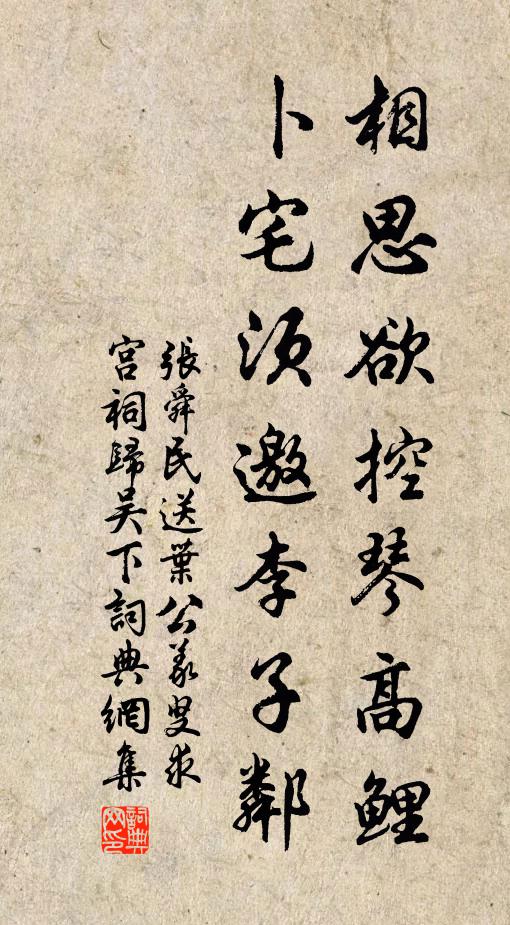 相思欲控琴高鲤
卜宅须邀李子鄰
張舜民送葉公义叟求
宫祠歸吴下詞典網集
詞典
网印